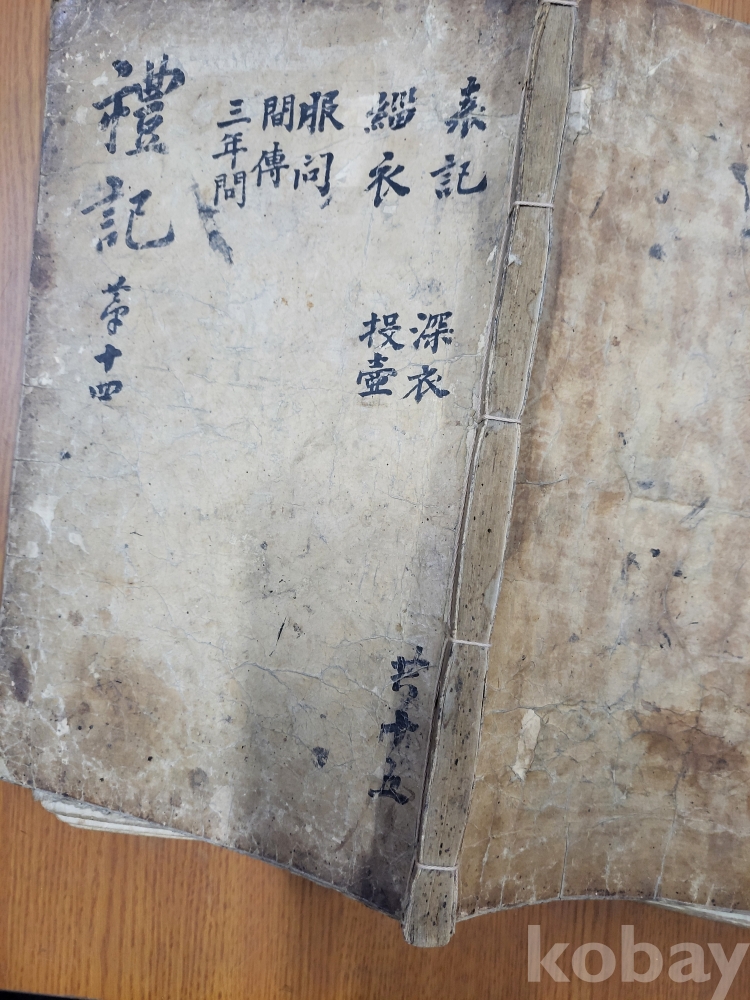 禮記
苐十四
表記
緇衣
服問
間傳
三年問
深衣
投壺
共十五
kobay